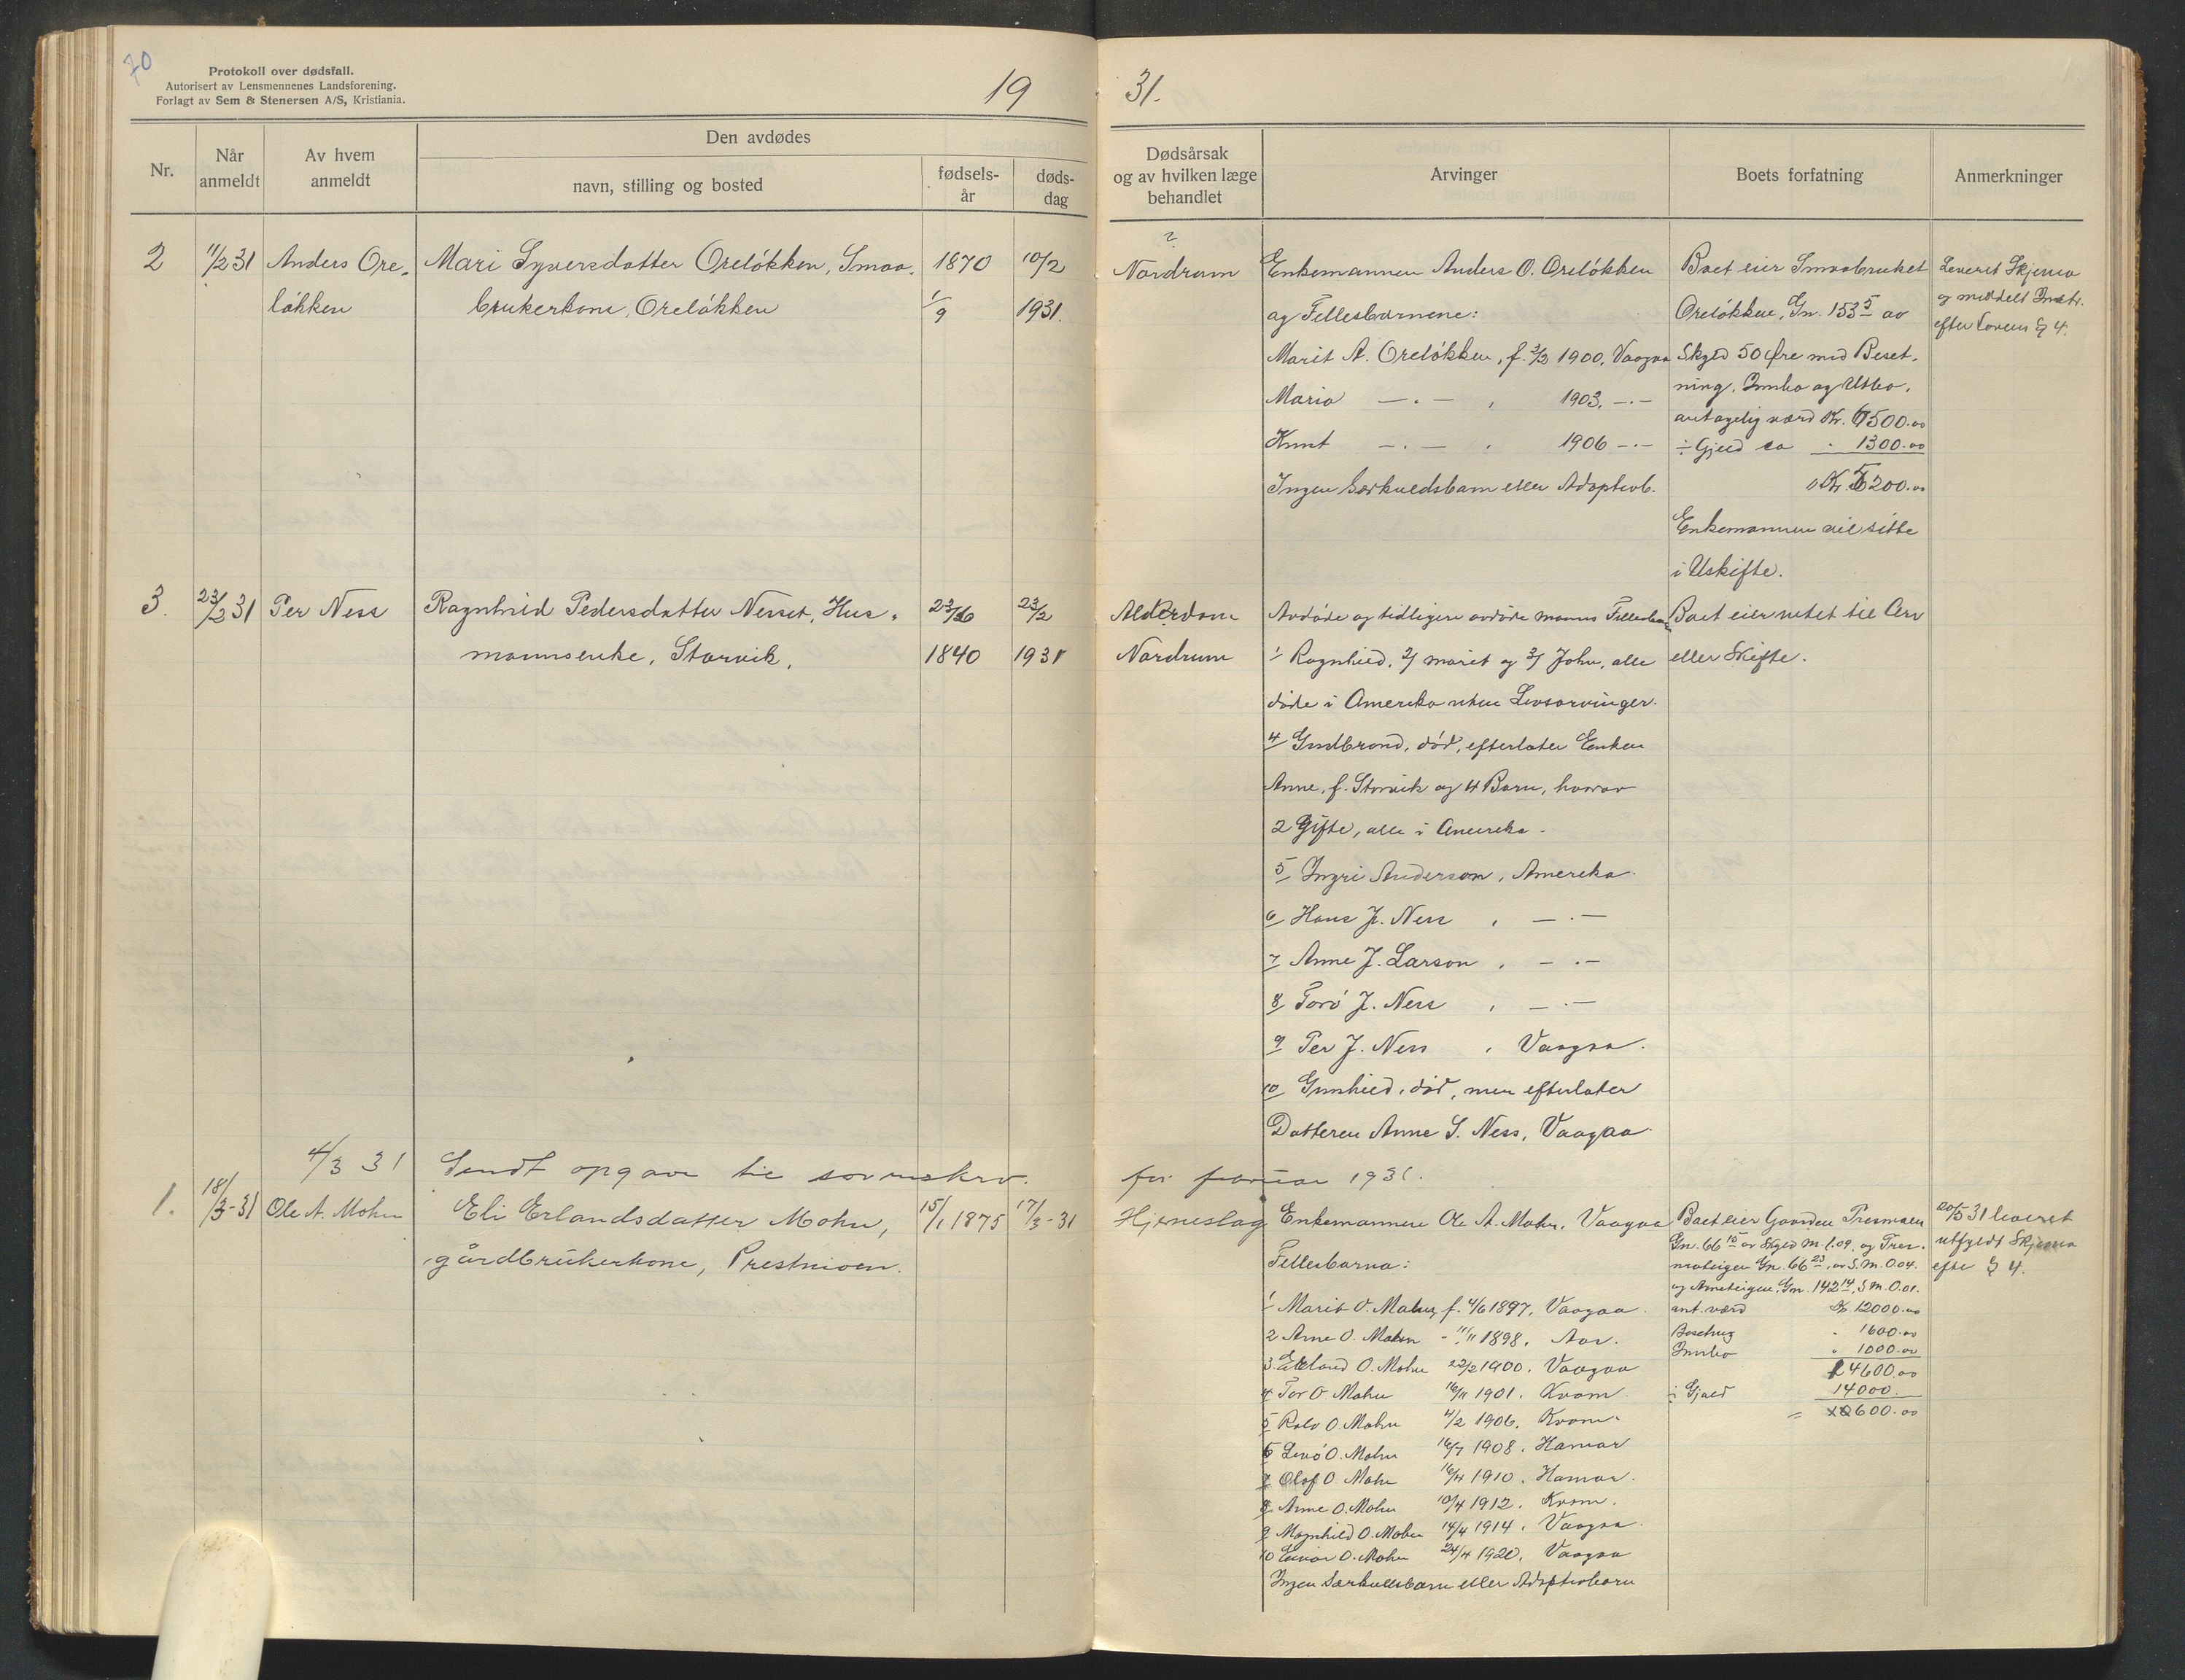 70
Protokoll over dødsfall.
Autorisert av Lensmennenes Landsforening.
Forlagt av Sem & Stenersen A/S, Kristiania.
19
31.
Nr.
Når anmeldt
Av hvem anmeldt
Den avdødes
navn, stilling og bosted
fødsels-år
døds-dag
Dødsårsak
og av hvilken læge
behandlet
Arvinger
Boets forfatning
Anmerkninger
2
11/2 31
Anders Ore-
løkken
Mari Syversdatter Oreløkken, Smaa-
brukerkone, Oreløkken
1870
1/9
10/2
1931.
?
Nordrum
Enkemannen Anders O. Oreløkken
og Fellesbarnene:
Marit A. Oreløkken, f. 3/2 1900, Vaagaa
Maria —.— , 1903, —.—
Knut —.— , 1906 —.—
Ingen Særkuldsbarn eller Adoptivb.
Boet eier Smaabruket
Oreløkken, Gn. 153 5 av
Skyld 50 Øre med Beset-
ning, Innbo og Utbo,
antagelig værd Kr. 6500.00
÷ Gjeld ca " 1300.00
Kr. 5200.00
Enkemannen vil sitte
i Uskifte.
Leveret Skjema
og meddelt Instr.
efter Lovens § 4.
3.
23/2 31
Per Ness
Ragnhild Pedersdatter Nesset, Hus-
mannsenke, Storvik,
23/6
1840
23/2
1931
Alderdom
Nordrum
Avdøde og tidligere avdøde manns Fellesbarn
1/ Ragnhild, 2/ Marit og 3/ John, alle
døde i Amerika uten Livsarvinger.
4/ Gudbrand, død, efterlater Enken
Anne, f. Storvik og 4 Barn, hvorav
2 Gifte, alle i Amerika.
5/ Ingri Anderson, Amerika.
6/ Hans J. Ness , —.—
7/ Anne J. Larson , —.—
8/ Torø J. Ness , —.—
9/ Per J. Ness , Vaagaa.
10/ Gunhild, død, men efterlater
Datteren Anne S. Ness, Vaagaa.
Boet eier intet til Arv
eller Skifte.
4/3 31 Sendt opgave til sorenskrv. for februar 1931.
1.
18/3-31
Ole A. Mohn
Eli Erlandsdatter Mohn,
gårdbrukerkone, Prestmoen.
15/1 1875
17/3-31
Hjerneslag
Enkemannen Ole A. Mohn, Vaagaa
Fellesbarna:
1/ Marit O. Mohn, f. 4/6 1897, Vaagaa
2 Arne O. Mohn - 11/11 1898,
3 Erland O. Mohn 22/2 1900. Vaagaa
4 Tor O. Mohn 16/11 1901. Kvam.
5 Rolv O. Mohn 4/2 1906, Kvam.
6 O. Mohn 16/7 1908. Hamar
7 Olaf O. Mohn 16/4 1910. Hamar.
8 Anne O. Mohn 10/4 1912. Kvam.
9 Magnhild O. Mohn 14/4 1914. Vaagaa.
10 Einar O. Mohn 24/4 1920, Vaagaa
Ingen Særkullsbarn eller Adoptivbarn
Boet eier Gaarden
Gn. 66 15 av Skyld M. 1.09, og
Gn. 66 23, av S. M. 0.04.
og Gn. 142 14, S. M. 0.01.
ant. værd Kr. 12000.00
" 1600.00
Innbo " 1000.00
14600.00
÷ Gjeld 14000.
= 600.00
20/5 31 leveret
utfyldt Skjema
efter § 4.